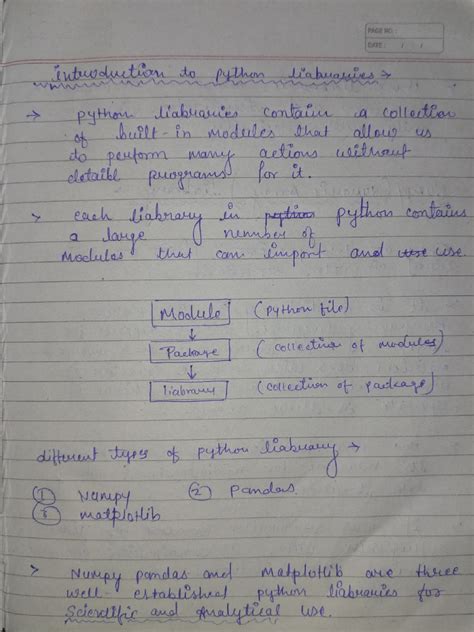 PAGE NO.:
DATE: / /
introduction to python liabraries →
→ python liabraries contain a collection
of built-in modules that allow us
to perform many actions without
detaible programs for it.
→ each liabrary in python contains
a large nember of
Modules that can import and use.
Module (python file)
↓
Package (collection of modules)
↓
liabrary (collection of package)
different types of python liabrary →
① Numpy ② Pandas
③ matplotlib
> Numpy pandas and Matplotlib are three
well-established python liabraries for
Scientific and Analytical use.